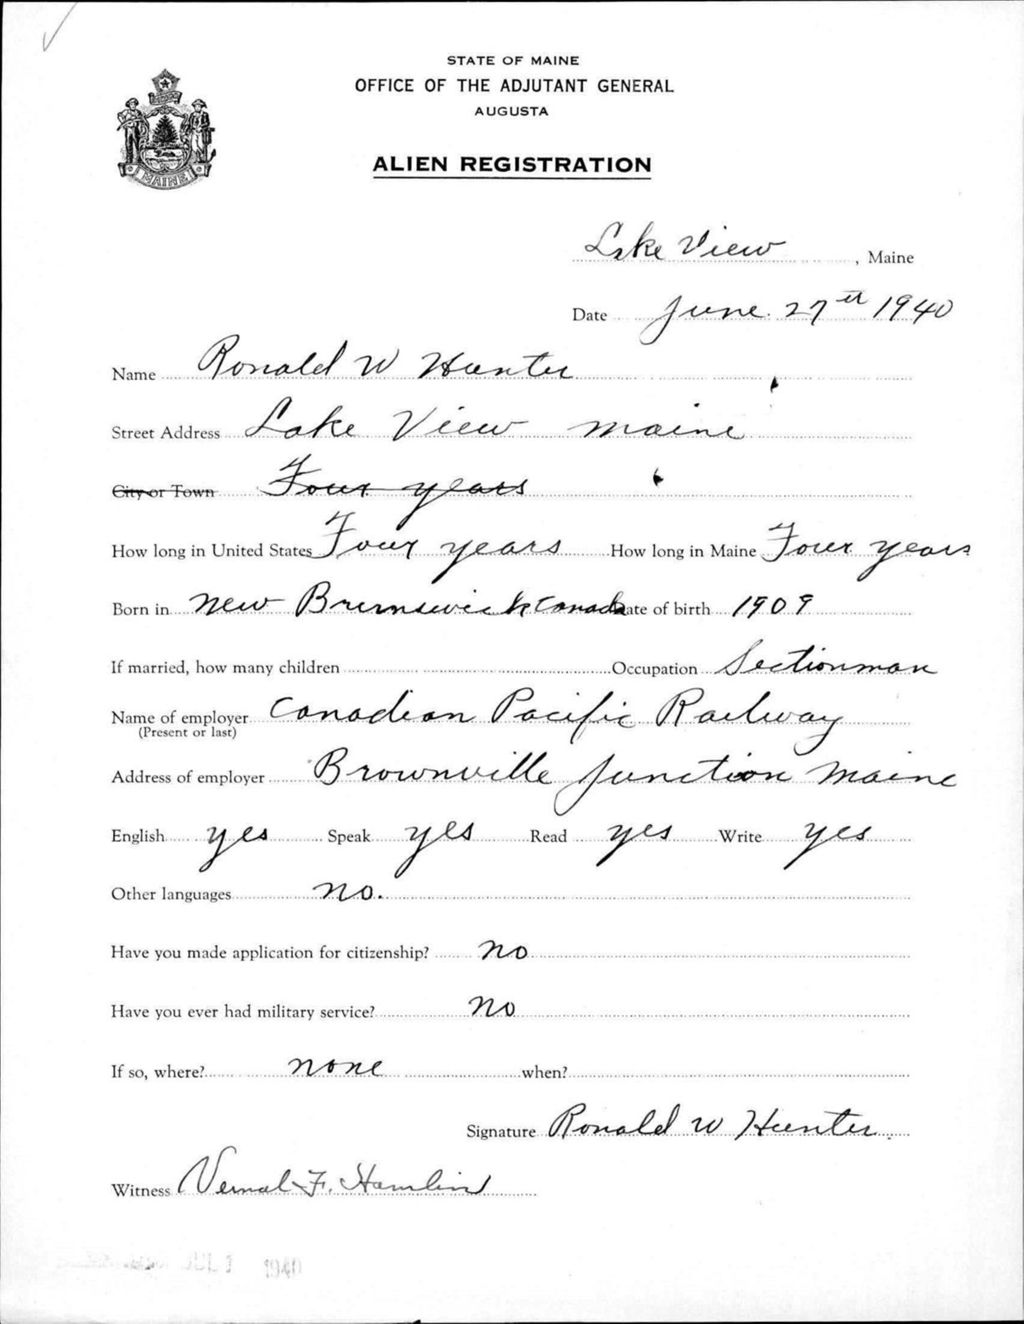 STATE OF MAINE
OFFICE OF THE ADJUTANT GENERAL
AUGUSTA
ALIEN REGISTRATION
MAINE
Lake View, Maine
Date June 27th 1940
Name Ronald W Hunter
Street Address Lake View Maine
City or Town Four years
How long in United States Four years How long in Maine Four years
Born in New Brunswick Canada ate of birth 1909
If married, how many children Occupation Sectionman
Name of employer Canadian Pacific Railway
(Present or last)
Address of employer Brownville Junction Maine
English yes Speak yes Read yes Write yes
Other languages no.
Have you made application for citizenship? no
Have you ever had military service? no
If so, where? none when?
Signature Ronald W Hunter
Witness Vernal F. Hamlin
JUL 1 1940